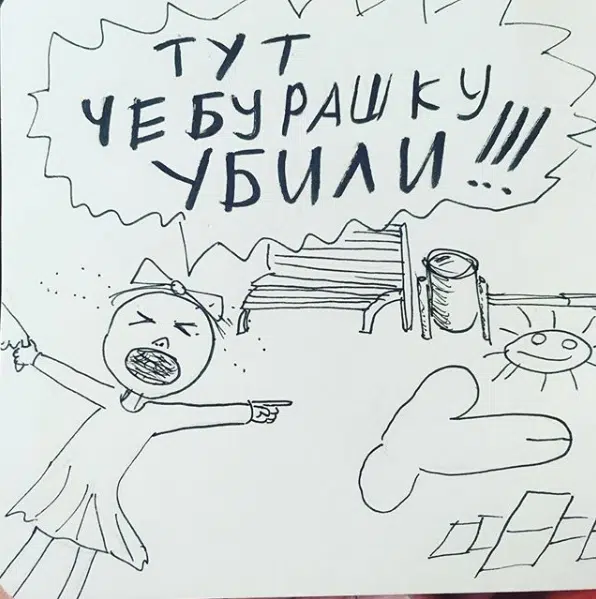 ТУТ
ЧЕБУРАШКУ
УБИЛИ!!!...